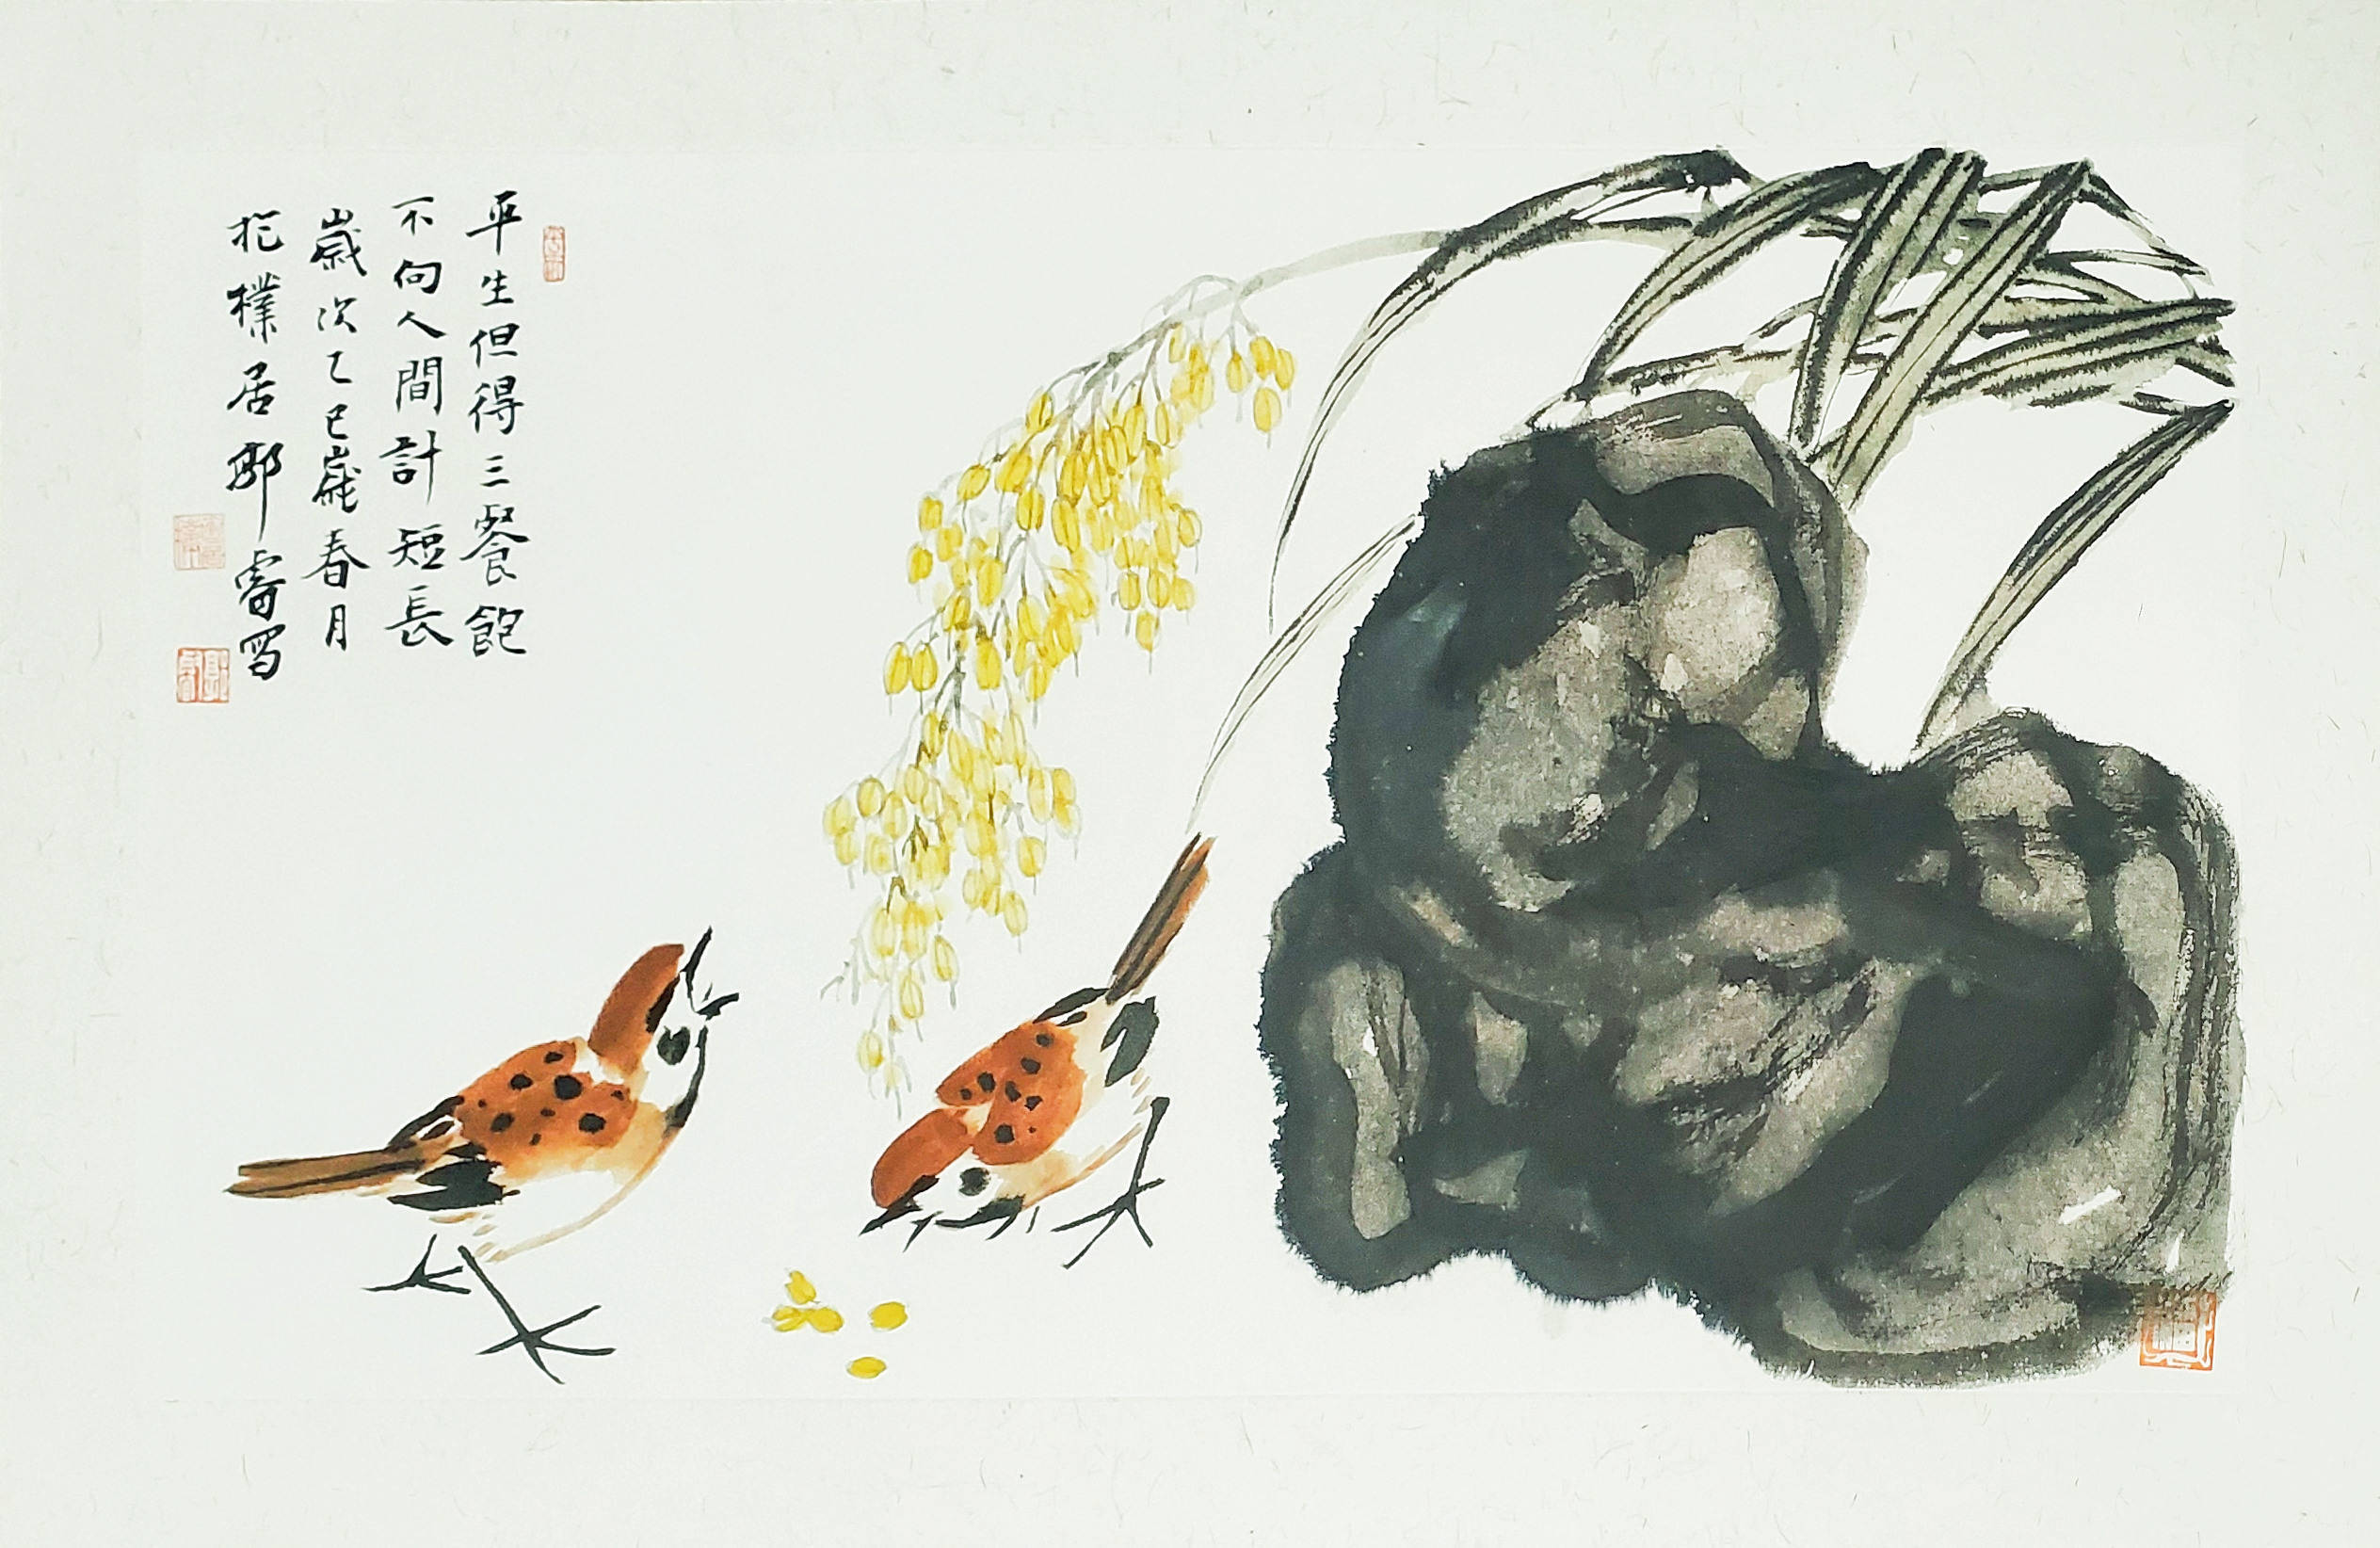 平生但得三餐飽
不向人間計短長
歲次乙巳歲春月
抱樸居鄢睿写